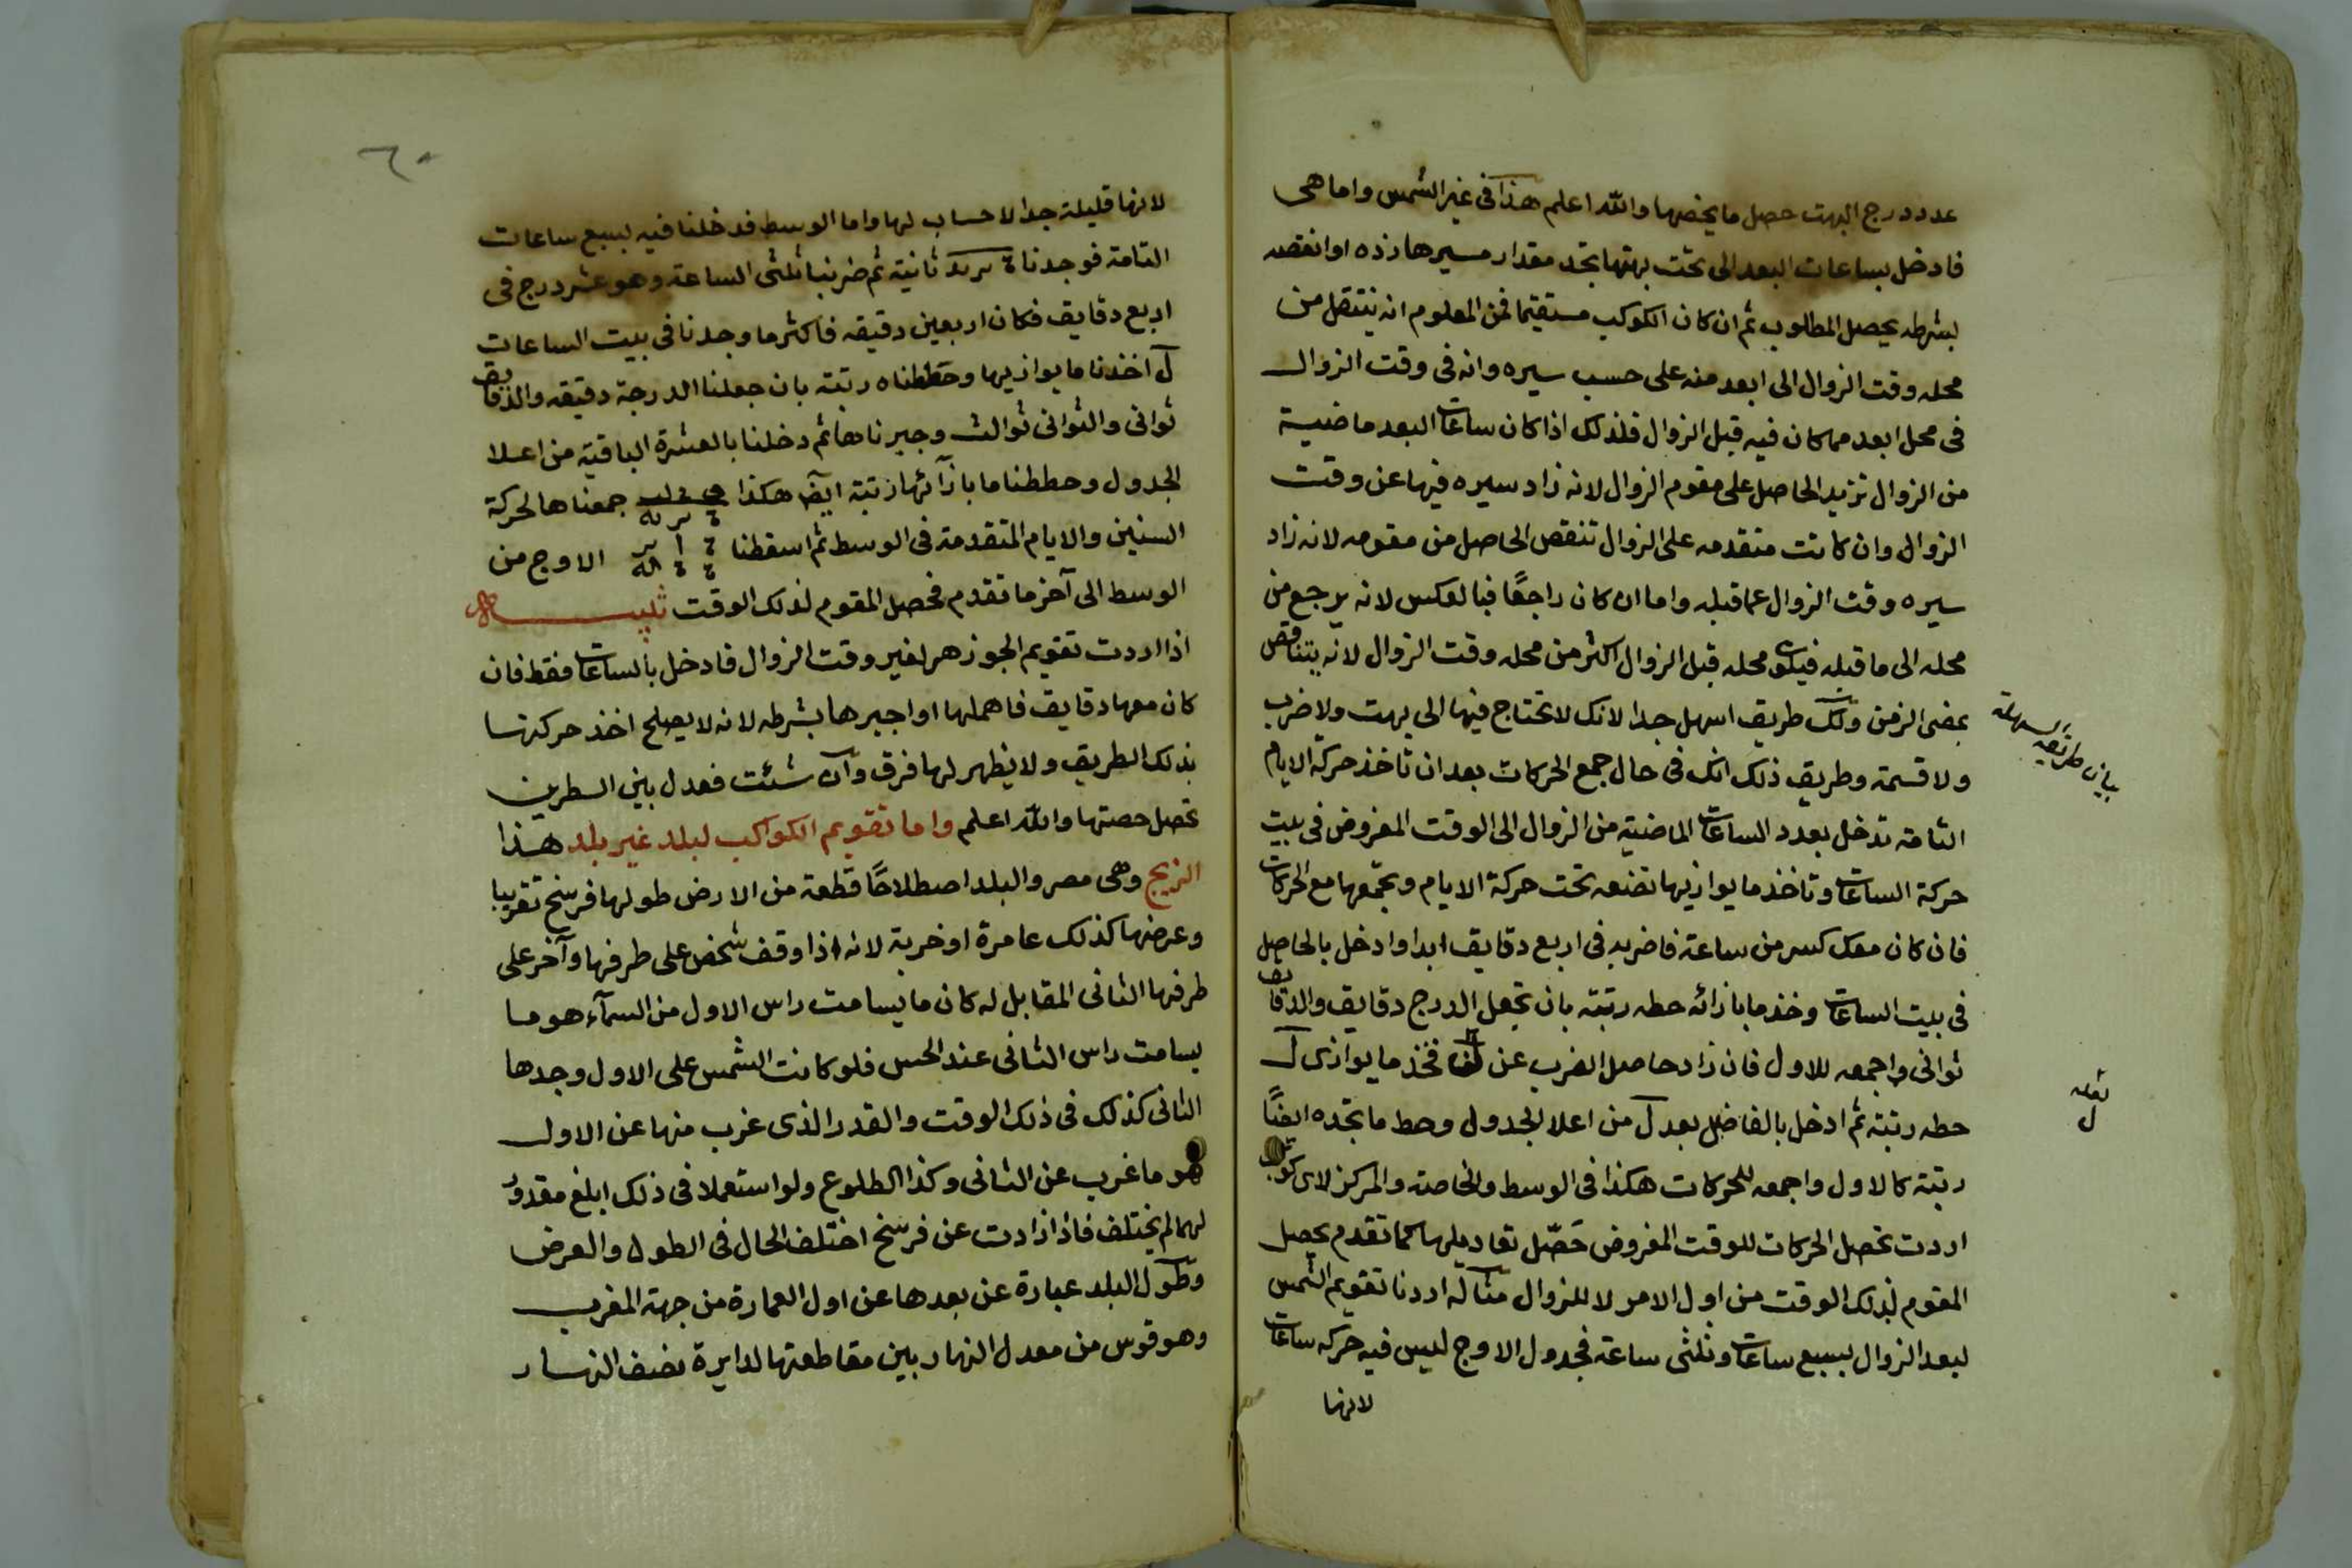 عدد درج البهت حصل ما يخصها والله اعلم هذا فى غير الشمس واما هى
فادخل بساعات البعد الى تحت بهتها تجد مقدار مسيرها زده او انقصه
بشرطه يحصل المطلوب ثم ان كان الكوكب مستقيما فمن المعلوم انه ينتقل من
محله وقت الزوال الى ابعد منه على حسب سيره وانه فى وقت الزوال
فى محل ابعد مما كان فيه قبل الزوال فلذلك اذا كان ساعات البعد ماضية
من الزوال تزيد الحاصل على مقوم الزوال لانه زاد سيره فيها عن وقت
الزوال وان كانت متقدمه على الزوال تنقص الحاصل من مقومه لانه زاد
سيره وقت الزوال عما قبله واما ان كان راجعًا فبالعكس لانه يرجع من
محله الى ما قبله فيكون محله قبل الزوال اكثر من محله وقت الزوال لانه يتناقص
بمضى الزمن ولك طريق اسهل جدا لانك لا تحتاج فيها الى بهت ولا ضرب
بيان طريقه السهلة
ولا قسمة وطريق ذلك انك فى حال جمع الحركات بعد ان تاخذ حركة الايام
التامة تدخل بعدد الساعات الماضية من الزوال الى الوقت المفروض فى بيت
حركة الساعات وتاخذ ما يوازيها تضعه تحت حركة الايام وتجمعها مع الحركات
فان كان معك كسر من ساعة فاضربه فى اربع دقايق ابدا وادخل بالحاصل
فى بيت الساعات وخذ ما بازائه حطه رتبة بان تجعل الدرج دقايق والدقايق
ثوانى واجمعه للاول فان زاد حاصل الضرب عن فخذ ما يوازى ل
حطه رتبة ثم ادخل بالفاضل بعد ل من اعلا الجدول وحط ما تجده ايضًا
رتبة كالاول واجمعه للحركات هكذا فى الوسط والخاصة والمركز لاى كوكب
اردت تحصل الحركات للوقت المفروض حَصّل تعاديلها كما تقدم يحصل
المقوم لذلك الوقت من اول الامر لا للزوال مثاله اردنا تقويم الشمس
لبعد الزوال بسبع ساعات وثلثى ساعة فجدول الاوج ليس فيه حركه ساعات
لانها
لانها قليلة جدا لا حساب لها واما الوسط فدخلنا فيه بسبع ساعات
التامة فوجدنا ثانية ثم ضربنا ثلثى الساعة وهو عشر درج فى
اربع دقايق فكان اربعين دقيقه فاكثر ما وجدنا فى بيت الساعات
ل اخذنا ما يوازيها وحططناه رتبة بان جعلنا الدرجة دقيقه والدقايق
ثوانى والثوانى ثوالث وجبرناها ثم دخلنا بالعشرة الباقية من اعلا
الجدول وحططنا ما بازآئها رتبة ايضا هكذا جمعناها لحركة
السنين والايام المتقدمة فى الوسط ثم اسقطنا الاوج من
الوسط الى آخر ما تقدم فحصل المقوم لذلك الوقت تنبيه
اذا اردت تقويم الجوزهر لغير وقت الزوال فادخل بالساعات فقط فان
كان معها دقايق فاهملها او اجبرها بشرطه لانه لا يصلح اخذ حركتها
بذلك الطريق ولا يظهر لها فرق وان شئت فعدل بين السطرين
تحصل حصتها والله اعلم واما تقويم الكواكب لبلد غير بلد هذا
الزيج وهى مصر والبلد اصطلاحًا قطعة من الارض طولها فرسخ تقريبا
وعرضها كذلك عامرة او خربة لانه اذا وقف شخص على طرفها وآخر على
طرفها الثانى المقابل له كان ما يسامت راس الاول من السمآء هو ما
يسامت راس الثانى عند الحس فلو كانت الشمس على الاول وجدها
الثانى كذلك فى ذلك الوقت والقدر الذى غرب منها عن الاول
هو ما غرب عن الثانى وكذا الطلوع ولو استعملا فى ذلك ابلغ مقدور
لهما لم يختلف فاذا زادت عن فرسخ اختلف الحال فى الطول والعرض
وطول البلد عبارة عن بعدها عن اول العمارة من جهة المغرب
وهو قوس من معدل النهار بين مقاطعتها لدايرة نصف النهار